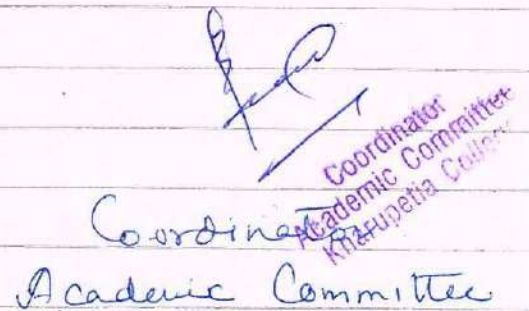 Coordinator
Academic Committee
Kharupetia College
Coordinator
Academic Committee